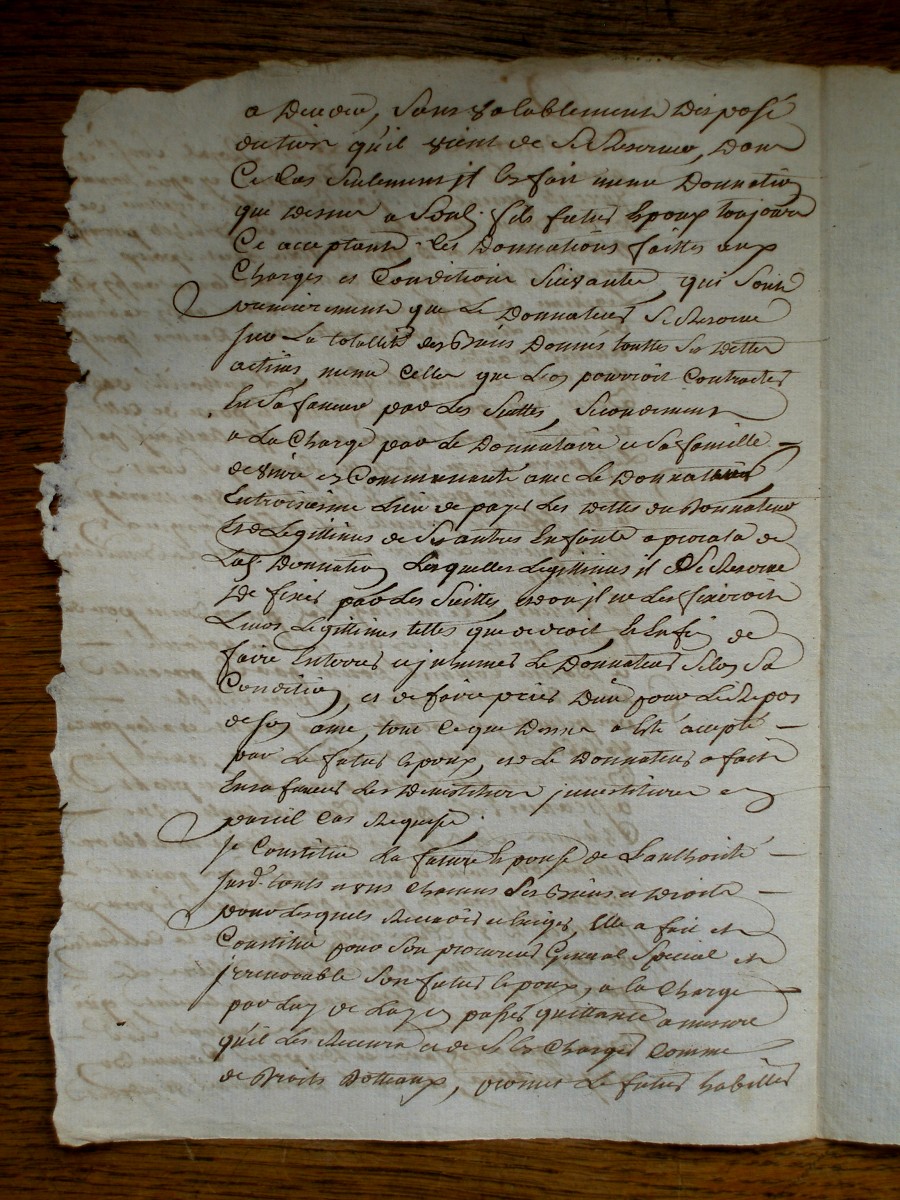 a Deceder, sans valablement disposé
du tiers qu'il vient de se Reserver, dans
Ce Cas seulement jl les fait meme Donnation
que dessus a fils futur Epoux toujours
Ce acceptant. les Donnations faittes aux
Charges et Conditions suivantes, qui sont
premierement que le Donnateur se Reserve
sur la totallité des Biens Donnés touttes ses dettes
actives meme Celles que l'on pourroit Contracter
En sa faveur par les suittes, secondement
a la Charge par le Donnataire et sa famille
de vivre en Communauté avec le Donnateur
En troisieme lieu de payer les dettes du Donnateur
et de legittimes de ses autres Enfants a prorata de
la Donnation lesquelles legittimes il se Reserve
de fixer par les suittes, et ou jl ne les fixeroit
legittimes telles que de droit Et Enfin de
faire Enterrer et jnhumer le Donnateur selon sa
Condition, et de faire prier Dieu pour le Repos
de son ame, tout ce que dessus a Eté accepté
par le futur Epoux, et le Donnateur a fait
En sa faveur les demissions jnvestitures en
pareil Cas Requise.
se Constitue la future Epouse de l'authorité
tous et uns Chacuns ses Biens et Droits
pour lesquels Recevoir et Exiger, Elle a fait et
Constitué pour son procureur General special et
jrrevocable son futur Epoux, a la Charge
par luy de luy en passer quittance a mesure
qu'il les Recevra et de les Charger Comme
de Droits Dotteaux, promet le futur habiller